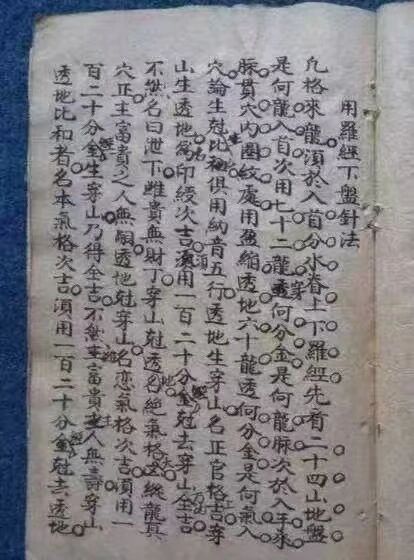 用羅經下盤針法
凢格來龍須於入首分水脊上下羅經先看二十四山地盤
是何龍入首次用七十二龍穿何分金是何龍脉次於入手來
脉貫穴內圈紋處用盈縮透地六十龍透何分金是何氣入
穴論生尅比和俱用納音五行透地生穿山名正官格吉穿
山生透地為印綬次吉須用一百二十分金尅去穿山全吉
不然名曰泄下雖貴無財丁穿山尅透地名絕氣格縱龍真
穴正主富貴之人無嗣透地尅穿山名恋氣格次吉須用一
百二十分金生穿山乃得全吉不然主富貴人無壽穿山
透地比和者名本氣格次吉須用一百二十分金尅去透地